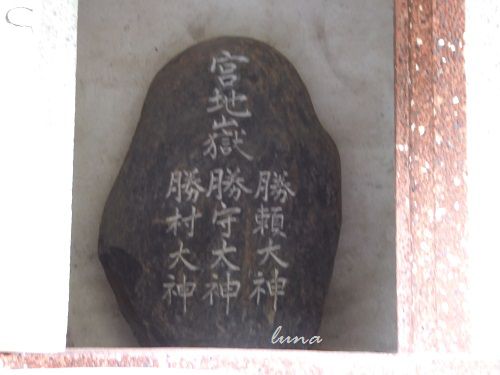 宮地嶽
勝頼大神
勝守大神
勝村大神
luna